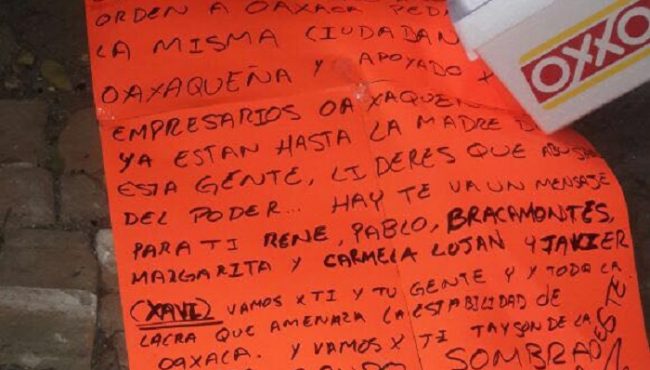 ORDEN A OAXACA
LA MISMA CIUDADAN
OAXAQUEÑA Y APOYADO X
OXXO
EMPRESARIOS OAXAQUEÑ
YA ESTAN HASTA LA MADRE D
ESTA GENTE, LIDERES QUE ABUSAN
DEL PODER... HAY TE VA UN MENSAJE
PARA TI RENE, PABLO, BRACAMONTES,
MARGARITA Y CARMELA LUJAN Y JAVIER
(XAVI) VAMOS X TI Y TU GENTE Y Y TODA LA
LACRA QUE AMENAZA LA ESTABILIDAD DE
OAXACA. Y VAMOS X TI TAYSON DE LA
SOMBRA